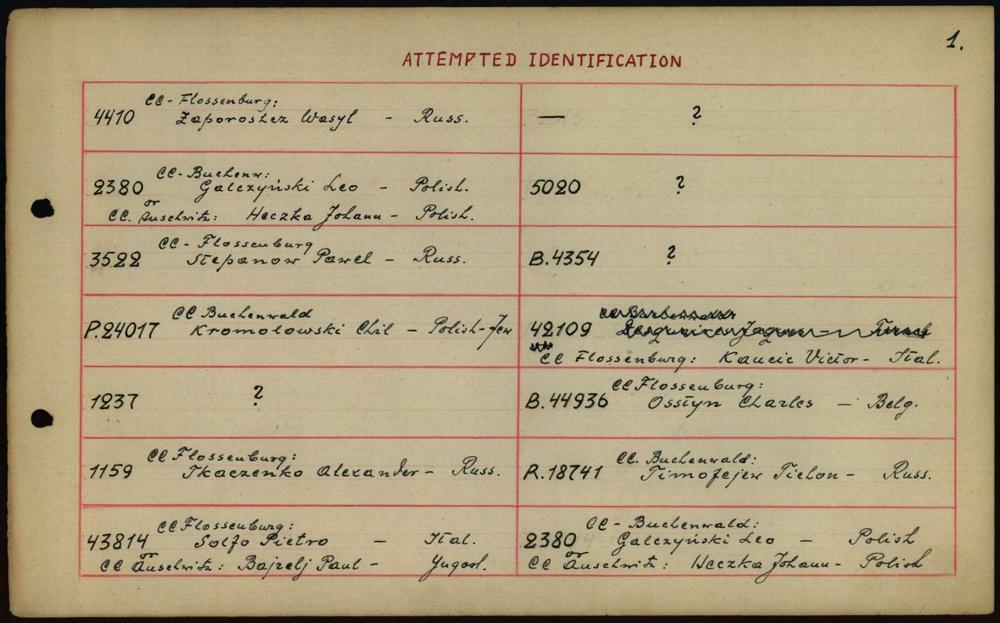 1.
ATTEMPTED IDENTIFICATION
CC - Flossenburg:
4410 Zaporoshez Wasyl - Russ.
— ?
CC - Buchenw:
2380 Galczyński Leo - Polish.
or
CC. Auschwitz: Heczka Johann - Polish.
5020 ?
CC - Flossenburg
3522 Stepanow Pawel - Russ.
B.4354 ?
CC Buchenwald
P.24017 Kromolowski Chil - Polish-Jew
42109
CC Flossenburg: Kaucic Victor - Ital.
1237 ?
CC Flossenburg:
B.44936 Osstyn Charles - Belg.
CC Flossenburg:
1159 Tkaczenko Alexander - Russ.
CC. Buchenwald:
R.18741 Timofejew Tichon - Russ.
CC Flossenburg:
43814 Solfo Pietro - Ital.
or
CC Auschwitz: Bajzelj Paul - Yugosl.
CC - Buchenwald:
2380 Galczyński Leo - Polish
or
CC Auschwitz: Heczka Johann - Polish